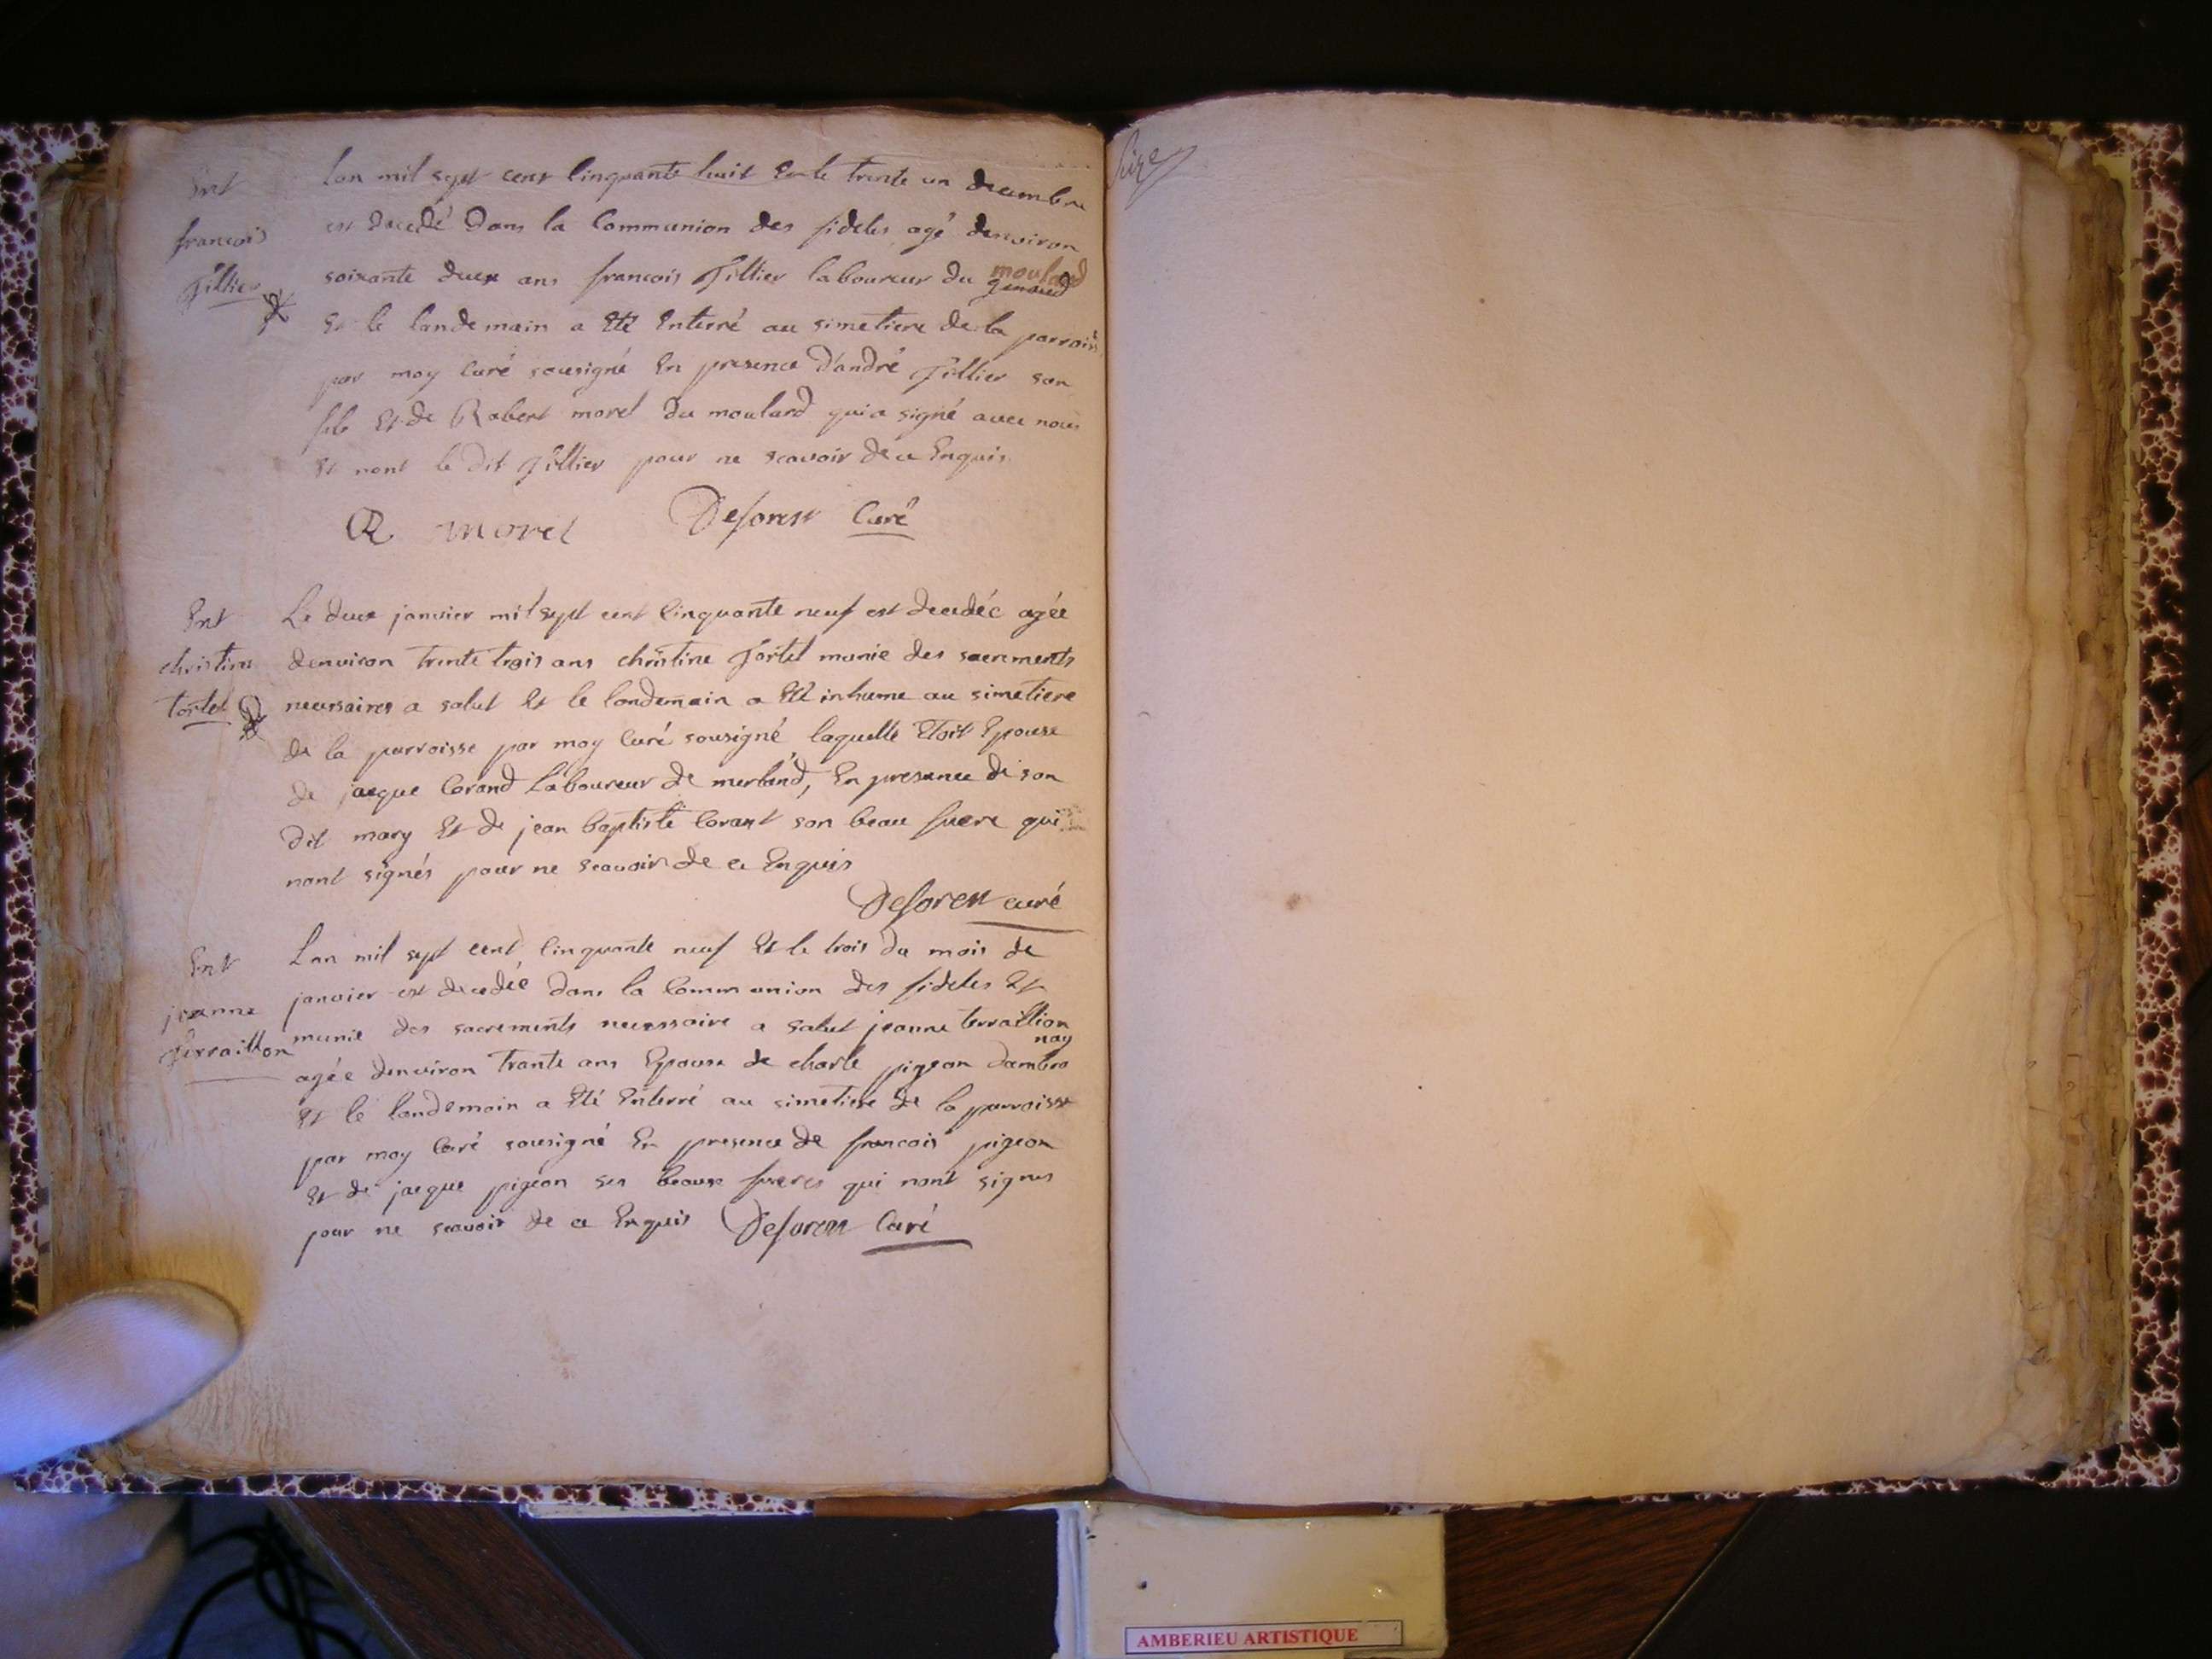 Ent
francois
Tillier
Lan mil sept cent Cinquante huit Et le trente un decembre
est decedé dans la Communion des fideles agé denviron
soixante deux ans francois Tillier laboureur du moulard
Et le landemain a Eté Enterré au simetiere de la parroiss
par moy Curé sousigné En presence D'andré Tillier son
fils Et de Robert morel du moulard qui a signé avec nous
Et nont le dit Tillier pour ne scavoir de ce Enquis
R morel Deforest Curé
Ent
christine
Tortel
Le deux janvier mil sept cent Cinquante neuf est decedéé agée
denviron trente trois ans christine Tortel munie des sacrements
necessaires a salut Et le landemain a Eté inhume au simetiere
de la parroisse par moy Curé sousigné laquelle Etoit Epouse
de jacque Corand Laboureur de merland, En presence de son
dit mary Et de jean baptiste Corant son beau frere qui
nont signés pour ne scavoir de ce Enquis
Deforest curé
Ent
jeanne
Terraillon
Lan mil sept cent Cinquante neuf Et le trois du mois de
janvier est decedéé dans la Communion des fideles Et
munie des sacrements necessaire a salut jeanne terraillion
agée denviron Trante ans Epouse de charle pigeon dambro
nay
Et le landemain a Eté Enterré au simetiere de la parroisse
par moy Curé sousigné En presence de francois pigeon
Et de jacque pigeon ses beaux freres qui nont signes
pour ne scavoir de ce Enquis Deforest Curé
AMBERIEU ARTISTIQUE